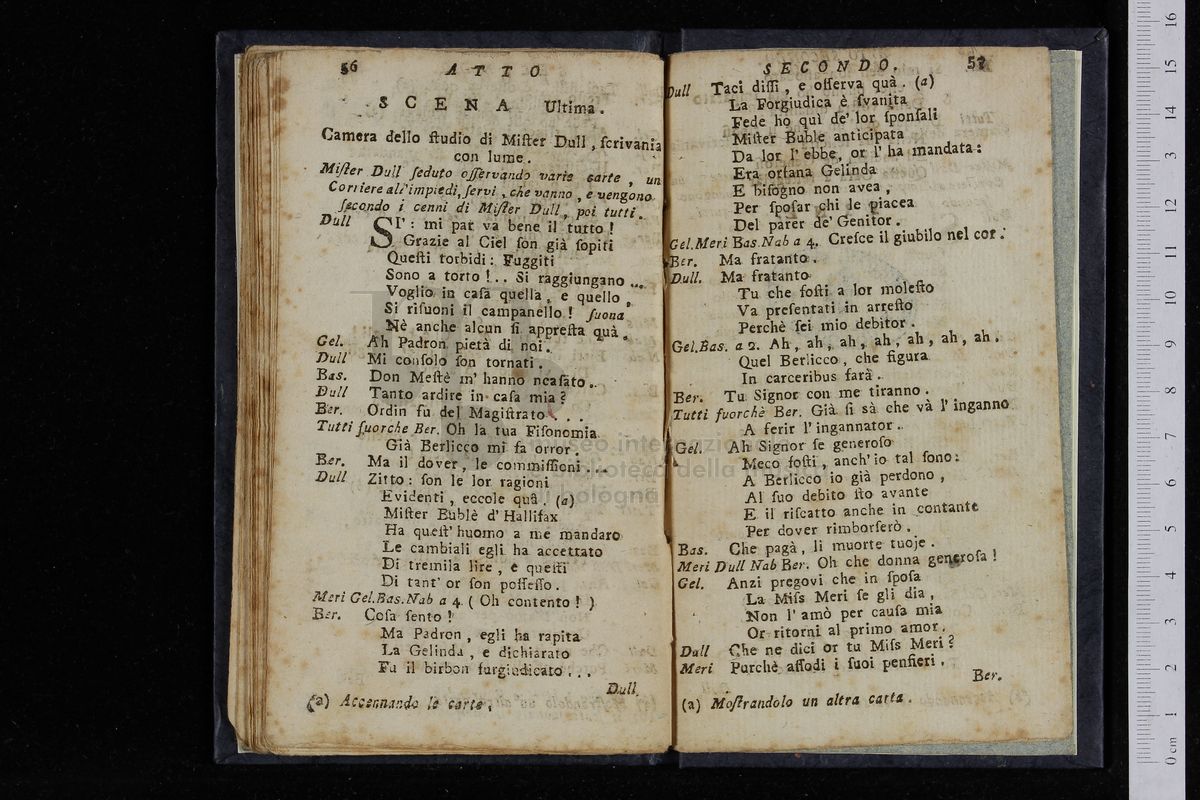 56
ATTO
SCENA Ultima.
Camera dello ſtudio di Miſter Dull, ſcrivania
con lume.
Miſter Dull ſeduto oſſervando varie carte, un
Corriere all'impiedi, ſervi, che vanno, e vengono
ſecondo i cenni di Miſter Dull, poi tutti.
Dull SI': mi par va bene il tutto!
Grazie al Ciel ſon già ſopiti
Queſti torbidi: Fuggiti
Sono a torto!.. Si raggiungano ...
Voglio in caſa quella, e quello,
Si riſuoni il campanello! ſuona
Nè anche alcun ſi appreſta quà.
Gel. Ah Padron pietà di noi.
Dull Mi conſolo ſon tornati.
Bas. Don Meſtè m' hanno ncaſato..
Dull Tanto ardire in caſa mia?
Ber. Ordin fu del Magiſtrato . . .
Tutti fuorche Ber. Oh la tua Fiſonomia
Già Berlicco mi fa orror.
Ber. Ma il dover, le commiſſioni ...
Dull Zitto: ſon le lor ragioni
Evidenti, eccole quà. (a)
Miſter Bublè d' Hallifax
Ha queſt' huomo a me mandaro
Le cambiali egli ha accettato
Di tremila lire, e queſti
Di tant' or ſon poſſeſſo.
Meri Gel.Bas.Nab a 4. ( Oh contento! )
Ber. Coſa ſento!
Ma Padron, egli ha rapita
La Gelinda, e dichiarato
Fu il birbon furgiudicato ...
Dull
(a) Accennando le carte.
SECONDO.
57
Dull Taci diſſi, e oſſerva quà. (a)
La Forgiudica è ſvanita
Fede ho quì de' lor ſponſali
Miſter Buble anticipata
Da lor l' ebbe, or l' ha mandata:
Era orfana Gelinda
E biſogno non avea,
Per ſpoſar chi le piacea
Del parer de' Genitor.
Gel.Meri Bas.Nab a 4. Creſce il giubilo nel cor.
Ber. Ma fratanto.
Dull. Ma fratanto
Tu che foſti a lor moleſto
Va preſentati in arreſto
Perchè ſei mio debitor.
Gel.Bas. a 2. Ah, ah, ah, ah, ah, ah, ah.
Quel Berlicco, che figura
In carceribus farà.
Ber. Tu Signor con me tiranno.
Tutti fuorchè Ber. Già ſi sà che và l' inganno
A ferir l' ingannator.
Gel. Ah Signor ſe generoſo
Meco foſti, anch' io tal ſono:
A Berlicco io già perdono,
Al ſuo debito ſto avante
E il riſcatto anche in contante
Per dover rimborſerò.
Bas. Che pagà, li muorte tuoje.
Meri Dull Nab Ber. Oh che donna generoſa!
Gel. Anzi pregovi che in ſpoſa
La Miſs Meri ſe gli dia,
Non l' amò per cauſa mia
Or ritorni al primo amor.
Dull Che ne dici or tu Miſs Meri?
Meri Purchè aſſodi i ſuoi penſieri.
Ber.
(a) Moſtrandolo un altra carta.
museo internazionale
biblioteca della musica
bologna
0 cm 1 2 3 4 5 6 7 8 9 10 11 12 13 14 15 16